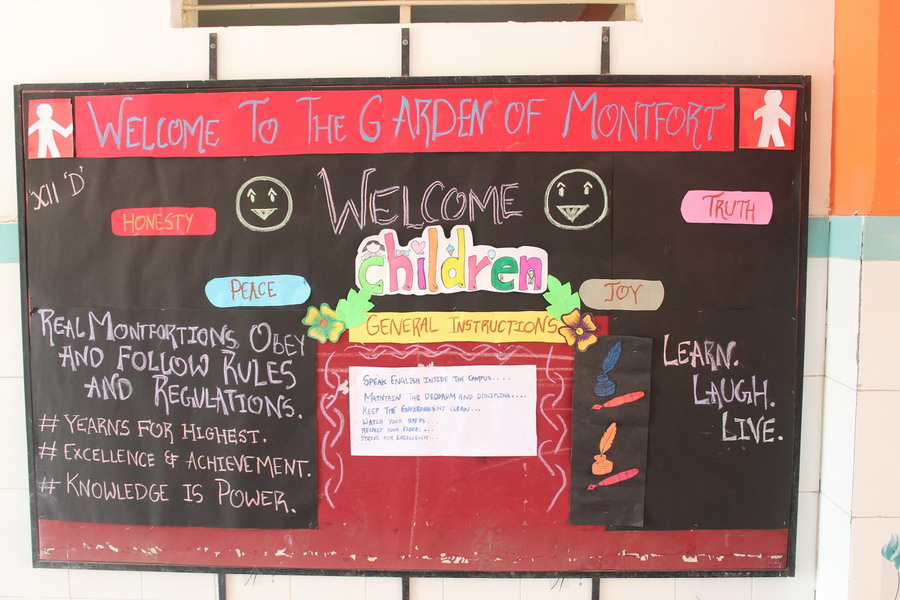 WELCOME TO THE GARDEN OF MONTFORT
XII 'D'
WELCOME
HONESTY
TRUTH
children
PEACE
JOY
GENERAL INSTRUCTIONS
REAL MONTFORTIONS OBEY
AND FOLLOW RULES
AND REGULATIONS.
# YEARNS FOR HIGHEST.
# EXCELLENCE & ACHIEVEMENT.
# KNOWLEDGE IS POWER.
SPEAK ENGLISH INSIDE THE CAMPUS....
MAINTAIN THE DECORUM AND DISCIPLINE....
KEEP THE ENVIRONMENT CLEAN...
WATCH YOUR STEPS...
RESPECT YOUR ELDERS...
STRIVE FOR EXCELLENCE...
LEARN.
LAUGH.
LIVE.